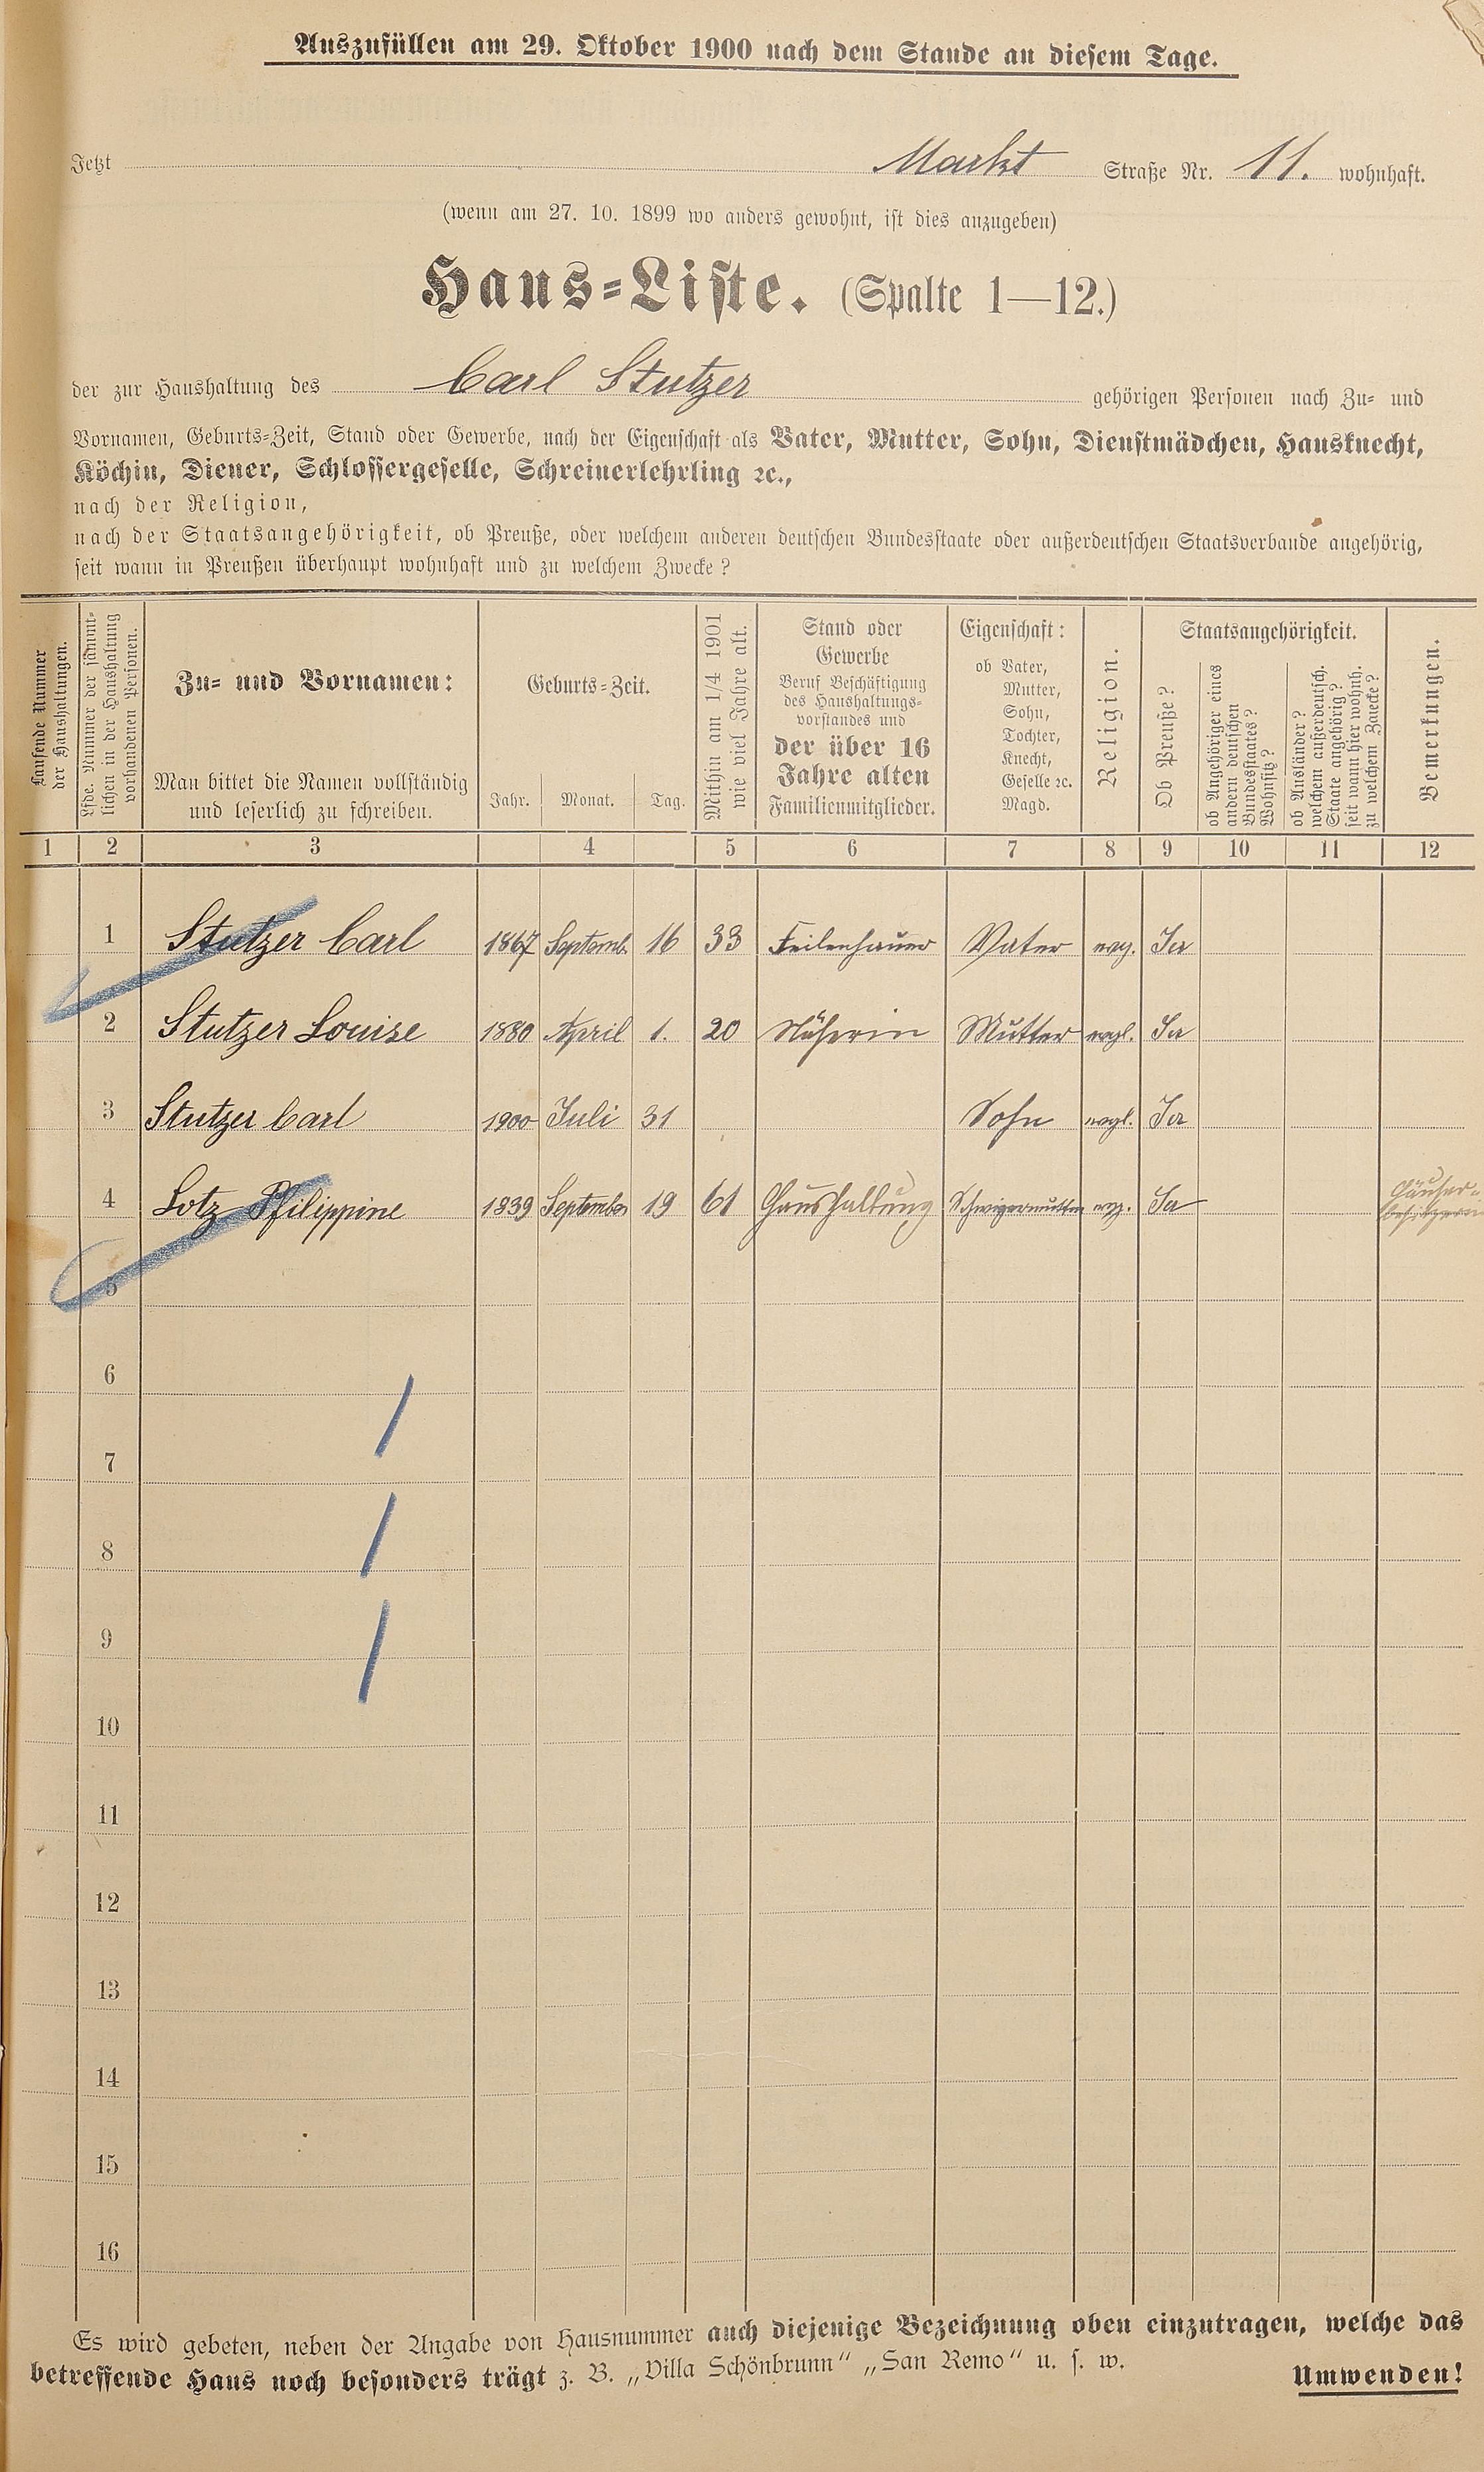 Auszufüllen am 29. Oktober 1900 nach dem Stande an diesem Tage.
Jetzt Markt Straße Nr. 11. wohnhaft.
(wenn am 27. 10. 1899 wo anders gewohnt, ist dies anzugeben)
Haus-Liste. (Spalte 1—12.)
der zur Haushaltung des Carl Stutzer gehörigen Personen nach Zu- und
Vornamen, Geburts-Zeit, Stand oder Gewerbe, nach der Eigenschaft als Vater, Mutter, Sohn, Dienstmädchen, Hausknecht,
Köchin, Diener, Schlossergeselle, Schreinerlehrling ꝛc.,
nach der Religion,
nach der Staatsangehörigkeit, ob Preuße, oder welchem anderen deutschen Bundesstaate oder außerdeutschen Staatsverbande angehörig,
seit wann in Preußen überhaupt wohnhaft und zu welchem Zwecke?
Laufende Nummer
der Haushaltungen.
Lfde. Nummer der sämmt-
lichen in der Haushaltung
vorhandenen Personen.
Zu- und Vornamen:
Man bittet die Namen vollständig
und leserlich zu schreiben.
Geburts-Zeit.
Jahr. Monat. Tag.
Mithin am 1/4 1901
wie viel Jahre alt.
Stand oder
Gewerbe
Beruf Beschäftigung
des Haushaltungs-
vorstandes und
der über 16
Jahre alten
Familienmitglieder.
Eigenschaft:
ob Vater,
Mutter,
Sohn,
Tochter,
Knecht,
Geselle ꝛc.
Magd.
Religion.
Staatsangehörigkeit.
Ob Preuße?
ob Angehöriger eines
andern deutschen
Bundesstaates?
Wohnsitz?
ob Ausländer?
welchem außerdeutsch.
Staate angehörig?
seit wann hier wohnh.
zu welchem Zwecke?
Bemerkungen.
1 2 3 4 5 6 7 8 9 10 11 12
1 Stutzer Carl 1867 Septemb. 16 33 Feilenhauer Vater evg. Ja
2 Stutzer Louise 1880 April 1. 20 Näherin Mutter evgl. Ja
3 Stutzer Carl 1900 Juli 31 Sohn evgl. Ja
4 Lotz Philippine 1839 September 19 61 Haushaltung Schwigermutter evg. Ja Häuser-
besitzerin
5
6
7
8
9
10
11
12
13
14
15
16
Es wird gebeten, neben der Angabe von Hausnummer auch diejenige Bezeichnung oben einzutragen, welche das
betreffende Haus noch besonders trägt z. B. „Villa Schönbrunn“ „San Remo“ u. s. w.
Umwenden!